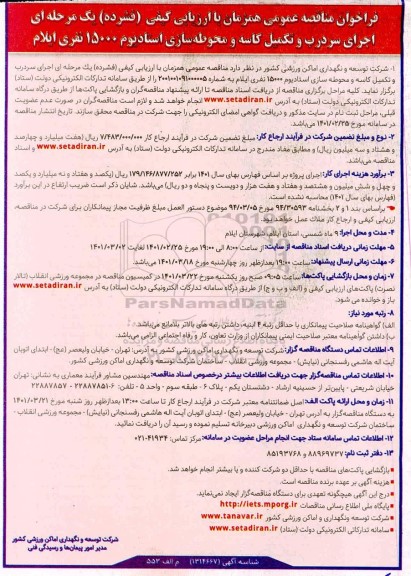 فراخوان مناقصه عمومی همزمان با ارزیابی کیفی (فشرده) یک مرحله ای
اجرای سردرب و تکمیل کاسه و محوطه‌سازی استادیوم ۱۵۰۰۰ نفری ایلام
۱- شرکت توسعه و نگهداری اماکن ورزشی کشور در نظر دارد مناقصه عمومی همزمان با ارزیابی کیفی (فشرده) یک مرحله ای اجرای سردرب
و تکمیل کاسه و محوطه سازی استادیوم ۱۵۰۰۰ نفری ایلام به شماره ۲۰۰۱۰۰۱۰۹۱۰۰۰۰۰۵ را از طریق سامانه تدارکات الکترونیکی دولت (ستاد)
برگزار نماید. کلیه مراحل برگزاری مناقصه از دریافت اسناد مناقصه تا ارائه پیشنهاد مناقصه‌گران و بازگشایی پاکت‌ها از طریق درگاه سامانه
تدارکات الکترونیکی دولت (ستاد) به آدرس www.setadiran.ir انجام خواهد شد و لازم است مناقصه‌گران در صورت عدم عضویت
قبلی، مراحل ثبت نام در سایت مذکور و دریافت گواهی امضای الکترونیکی را جهت شرکت در مناقصه محقق سازند. تاریخ انتشار مناقصه
در سامانه مورخ ۱۴۰۱/۰۲/۲۵ می‌باشد.
۲- نوع و مبلغ تضمین شرکت در فرآیند ارجاع کار: مبلغ تضمین شرکت در فرآیند ارجاع کار ۷/۴۸۳/۰۰۰/۰۰۰ ریال (هفت میلیارد و چهارصد
و هشتاد و سه میلیون ریال) و مطابق مفاد مندرج در سامانه تدارکات الکترونیکی دولت (ستاد) به آدرس www.setadiran.ir و اسناد
مناقصه می‌باشد.
۳- برآورد هزینه اجرای کار: اجرای پروژه بر اساس فهارس بهای سال ۱۴۰۱ برابر ۱۷۹/۱۴۶/۸۷۷/۲۵۲ ریال (یکصد و هفتاد و نه میلیارد و یکصد
و چهل و شش میلیون و هشتصد و هفتاد و هفت هزار و دویست و پنجاه و دو ریال) می‌باشد. شایان ذکر است ضریب ارتفاع در این برآورد
(فهارس بهای سال ۱۴۰۱) محاسبه نشده است.
براساس بند ۱ و ۲ بخشنامه ۹۴/۳۰۵۹۳ مورخ ۹۴/۰۳/۰۵ موضوع دستور العمل مبلغ ظرفیت مجاز پیمانکاران برای شرکت در
ارزیابی کیفی و ارجاع کار ملاک عمل خواهد بود.
۴- مدت و محل اجرا: ۹ ماه شمسی، استان ایلام، شهرستان ایلام
۵- مهلت زمانی دریافت اسناد مناقصه از سایت: از ساعت ۸:۰۰ الی ۱۹:۰۰ مورخ ۱۴۰۱/۰۲/۲۵ لغایت ۱۴۰۱/۰۳/۰۲
۶- مهلت زمانی ارسال پیشنهاد: ساعت ۱۹:۰۰ بعدازظهر روز چهارشنبه مورخ ۱۴۰۱/۰۳/۱۸ می‌باشد.
۷- زمان و محل بازگشایی پاکت‌ها: ساعت ۰۹:۰۵ صبح روز یکشنبه مورخ ۱۴۰۱/۰۳/۲۲ در کمیسیون مناقصه در مجموعه ورزشی انقلاب (تالار
نصرت) پاکت‌های ارزیابی کیفی و (الف و ب و ج) از طریق درگاه سامانه تدارکات الکترونیکی دولت (ستاد) به آدرس www.setadiran.ir
باز و خوانده می شود.
۸- رتبه مورد نیاز:
الف) گواهینامه صلاحیت پیمانکاری با حداقل رتبه ۴ ابنیه، داشتن رتبه های بالاتر بلامانع می‌باشد.
ب) داشتن گواهینامه معتبر صلاحیت ایمنی پیمانکاران از وزارت تعاون، کار و رفاه اجتماعی الزامی می‌باشد.
۹- اطلاعات تماس دستگاه مناقصه گزار: شرکت توسعه و نگهداری اماکن ورزشی کشور به آدرس: تهران - خیابان ولیعصر (عج) - ابتدای اتوبان
آیت اله هاشمی رفسنجانی (نیایش) - مجموعه ورزشی انقلاب - ساختمان شرکت توسعه و نگهداری اماکن ورزشی کشور.
۱۰- اطلاعات تماس مناقصه‌گزار جهت دریافت اطلاعات بیشتر درخصوص اسناد مناقصه: مهندسین مشاور فرآیند معماری به نشانی: تهران
خیابان شریعتی - پایین‌تر از حسینیه ارشاد - دشتستان یکم - پلاک ۶ - طبقه سوم - واحد ۵ - تلفن: ۶-۲۲۸۸۷۸۵۱ - ۲۲۸۸۷۸۵۷
۱۱- زمان و محل ارائه پاکت الف: اصل ضمانتنامه معتبر شرکت در فرآیند ارجاع کار تا ساعت ۱۳:۰۰ بعدازظهر روز شنبه مورخ ۱۴۰۱/۰۳/۲۱
به دستگاه مناقصه‌گزار به آدرس تهران - خیابان ولیعصر (عج) - ابتدای اتوبان آیت اله هاشمی رفسنجانی (نیایش) - مجموعه ورزشی انقلاب -
ساختمان شرکت توسعه و نگهداری اماکن ورزشی دبیرخانه تسلیم نموده و رسید آن را دریافت نمائید.
۱۲- اطلاعات تماس سامانه ستاد جهت انجام مراحل عضویت در سامانه: مرکز تماس: ۴۱۹۳۴-۰۲۱
۱۳- دفتر ثبت نام: ۸۸۹۶۹۷۳۷ و ۸۵۱۹۳۷۶۸
بازگشایی پاکت‌های مناقصه با حداقل دو شرکت کننده و یا بیشتر انجام خواهد شد.
هزینه آگهی بر عهده برنده مناقصه است.
درج این آگهی هیچگونه تعهدی برای دستگاه مناقصه‌گزار ایجاد نمی‌نماید.
پایگاه ملی اطلاع رسانی مناقصات http://iets.mporg.ir
شرکت توسعه و نگهداری اماکن ورزشی کشور www.tanavar.ir
سامانه تدارکاتی الکترونیکی دولت (ستاد) www.setadiran.ir
شرکت توسعه و نگهداری اماکن ورزشی کشور
مدیر امور پیمان‌ها و رسیدگی فنی
شناسه آگهی (۱۳۱۴۶۶۷) م الف ۵۵۳
ParsNamadData